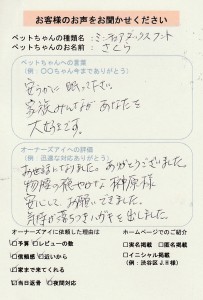 お客様のお声をお聞かせください
ペットちゃんの種類名：ミニチュアダックスフント
ペットちゃんのお名前：さくら
ペットちゃんへの言葉
（例：○○ちゃん今までありがとう）
安らかに眠って下さい。
家族みんなが あなたを
大好きです。
オーナーズアイへの評価
（例：迅速な対応ありがとう）
お世話になりました。ありがとうございました。
物腰の穏やかな 榊原様
安心して お願いできました。
気持が落ちつき
オーナーズアイに依頼した理由は
予算 レビューの数
信頼感 近いから
家まで来てくれる
当日返骨 夜間対応
ホームページでのご紹介
実名掲載 匿名掲載
イニシャル掲載
（例：渋谷区J.H様）